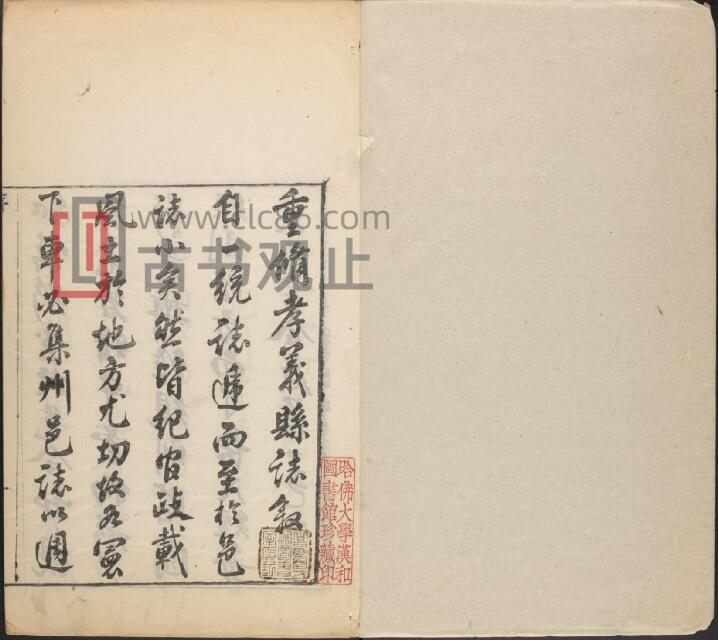 重脩孝義縣誌叙
自一統誌遞而至於邑
誌小矣然皆紀官政載
風土於地方尤切故各憲
下車必集州邑誌以週
序
哈佛大學漢和
圖書館珍藏印
www.tlc26.com
古书观止